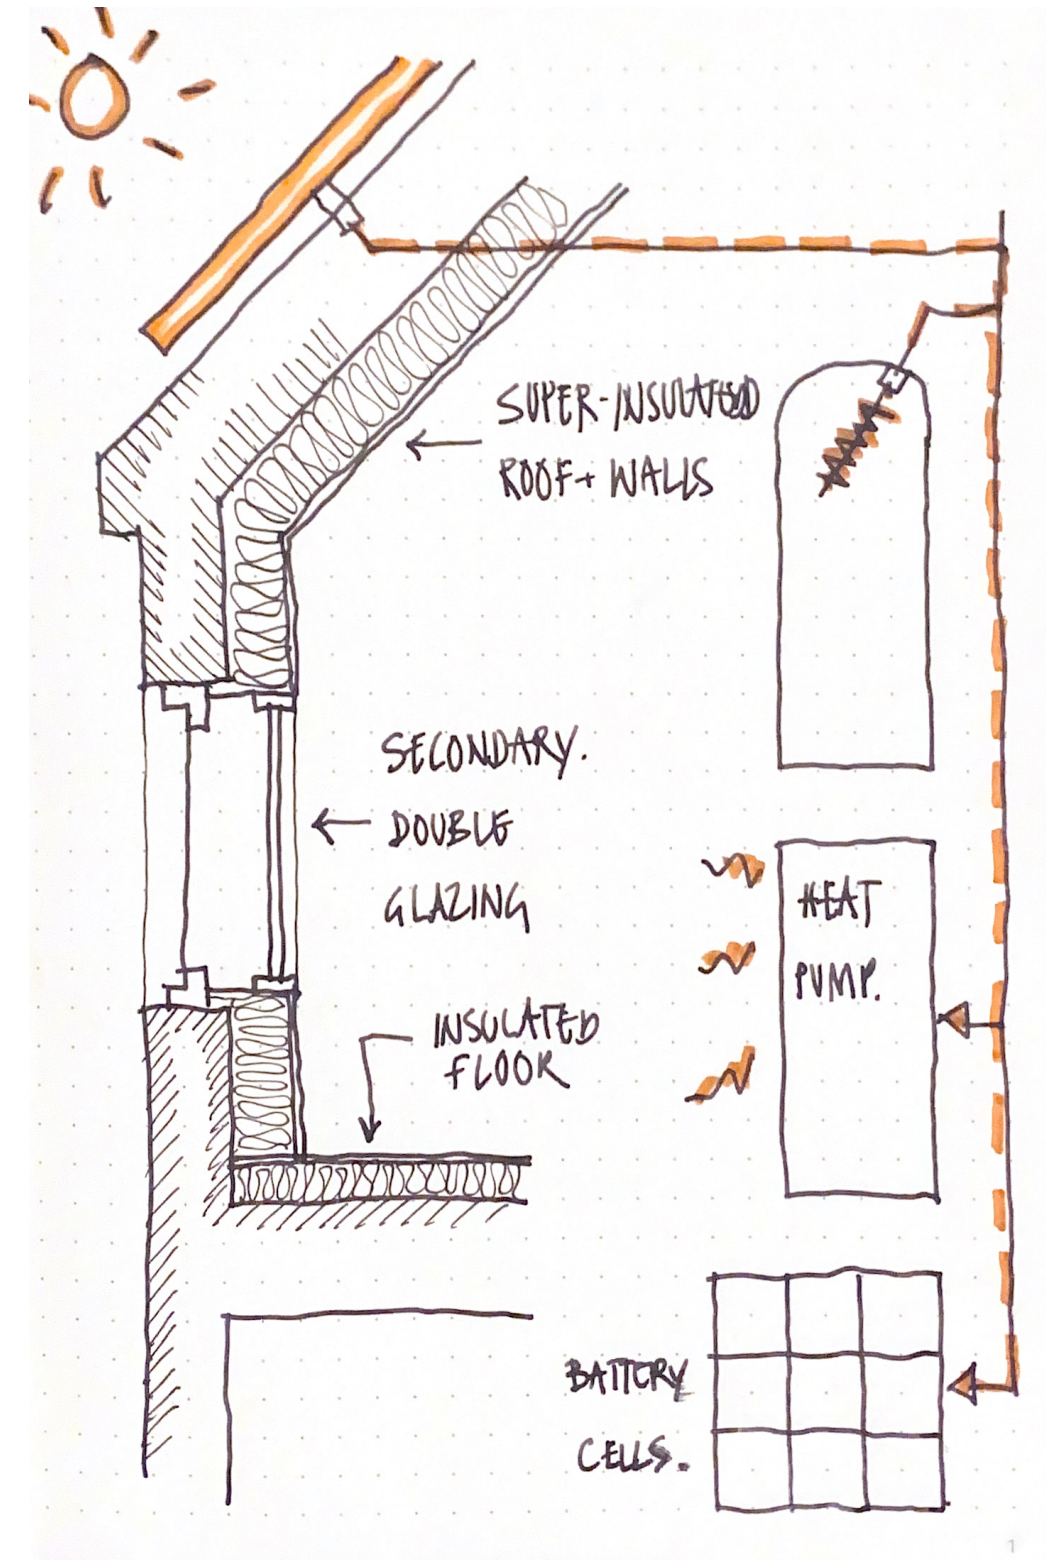 SUPER-INSULATED
ROOF + WALLS
SECONDARY.
DOUBLE
GLAZING
HEAT
PUMP.
INSULATED
FLOOR
BATTERY
CELLS.
1